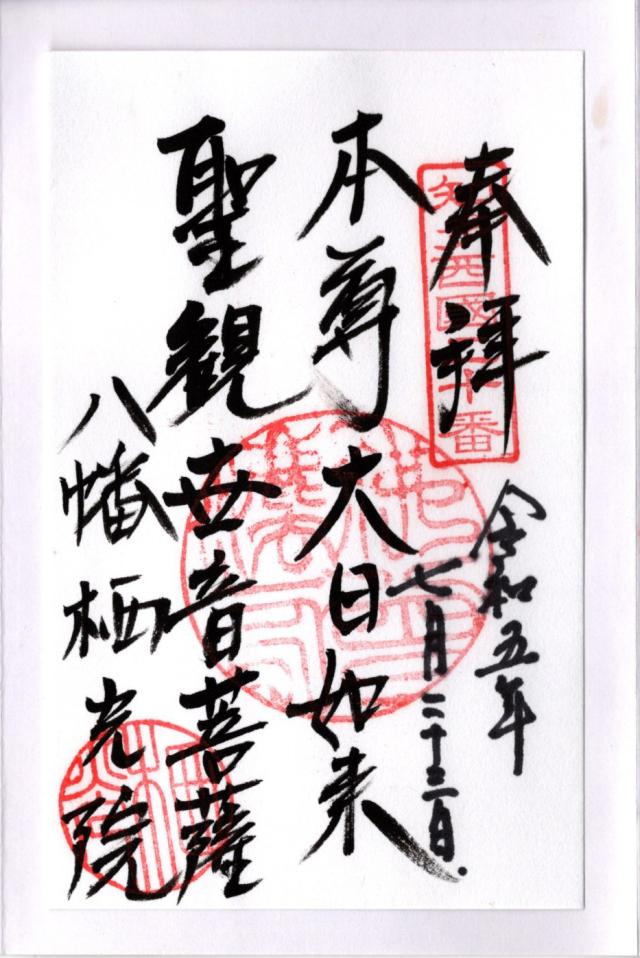 奉拝
令和五年
七月二十三日
本尊大日如来
聖観世音菩薩
八幡栖光院